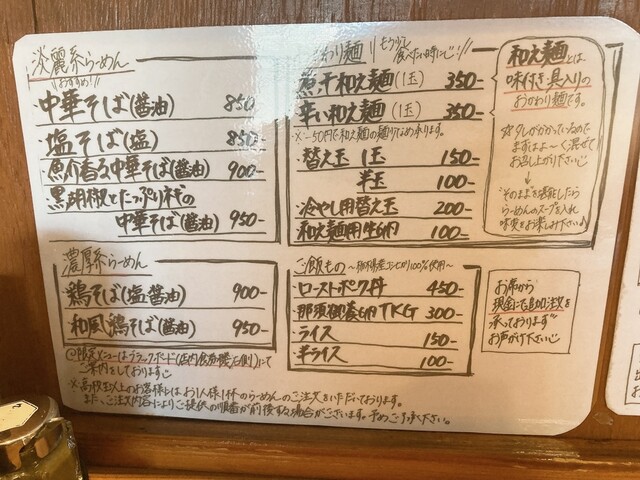 淡麗系らーめん
おすすめ!
中華そば(醤油) 850-
塩そば(塩) 850-
魚介香る中華そば(醤油) 900-
黒胡椒とたっぷりネギの
中華そば(醤油) 950-
濃厚系らーめん
鶏そば(塩・醤油) 900-
和風鶏そば(醤油) 950-
@限定メニューはブラックボード(店内食券機右側)にて
ご案内をしております
※高校生以上のお客様にはお1人様1杯のらーめんのご注文をいただいております。
また、ご注文内容によりご提供の順番が前後する場合がございます。予めご了承下さい。
わり麺
もう少し
食べたい時に!
煮干和え麺(1玉) 350-
辛い和え麺(1玉) 350-
※-50円で和え麺の麺半分なめ承ります。
替え玉 1玉 150-
半玉 100-
・冷やし用替え玉 200-
和え麺用生卵 100-
ご飯もの
ローストポーク丼 450-
・那須御養卵TKG 300-
・ライス 150-
・半ライス 100-
和え麺とは
味付き・具入りの
おかわり麺です。
まずはよ〜く混ぜて
お召し上がりください
↓
そのままを堪能したら
らーめんのスープを入れ
味変をお楽しみ下さい♪
お席から
現金にて追加注文を
承っております
お声がけ下さい